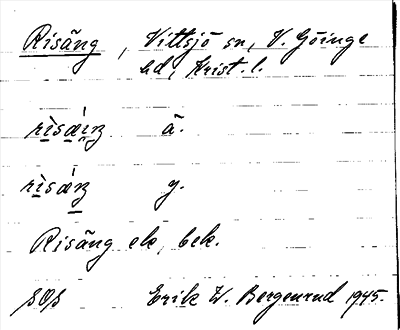 Risäng, Vittsjö sn, V. Göinge
hd, Krist. l.
ä.
y.
Risäng ek, bek.
SOS Erik W. Bergenrud 1945.